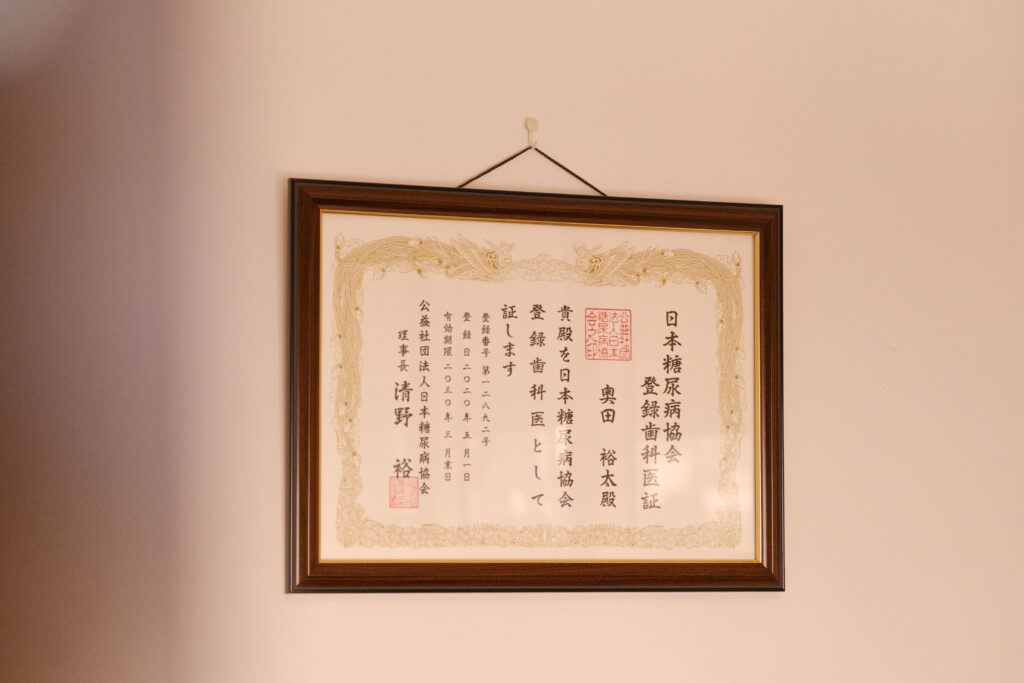 日本糖尿病協会
登録歯科医証
公益社団
法人日本
糖尿病協
会之印
奥田 裕太殿
貴殿を日本糖尿病協会
登録歯科医として
証します
登録番号 第一二八九二号
登録日 二〇二〇年 五月一日
有効期限 二〇三〇年 三月末日
公益社団法人日本糖尿病協会
理事長 清野 裕